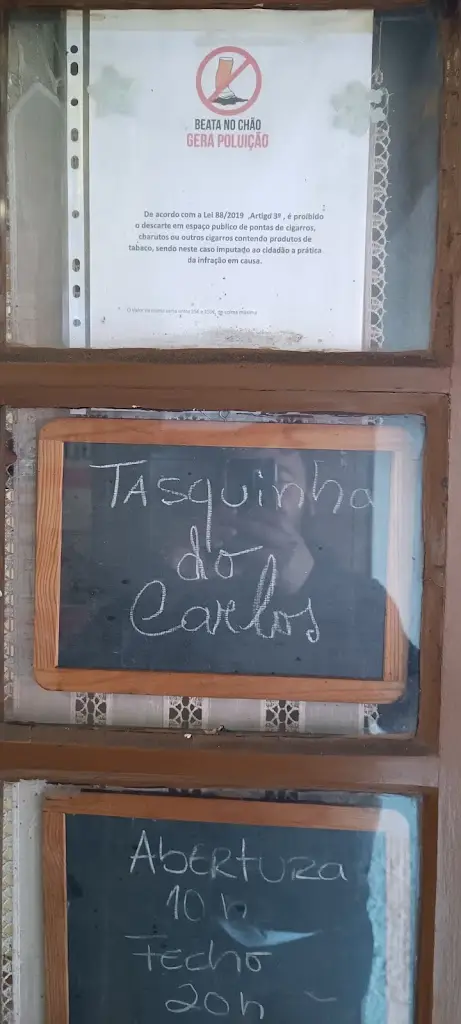 BEATA NO CHÃO
GERA POLUIÇÃO
De acordo com a Lei 88/2019 ,Artigo 3º , é proibido
o descarte em espaço publico de pontas de cigarros,
charutos ou outros cigarros contendo produtos de
tabaco, sendo neste caso imputado ao cidadão a prática
da infração em causa.
TASquinha
do
Carlos
AbERtuRa
10 h
Fecho
20h